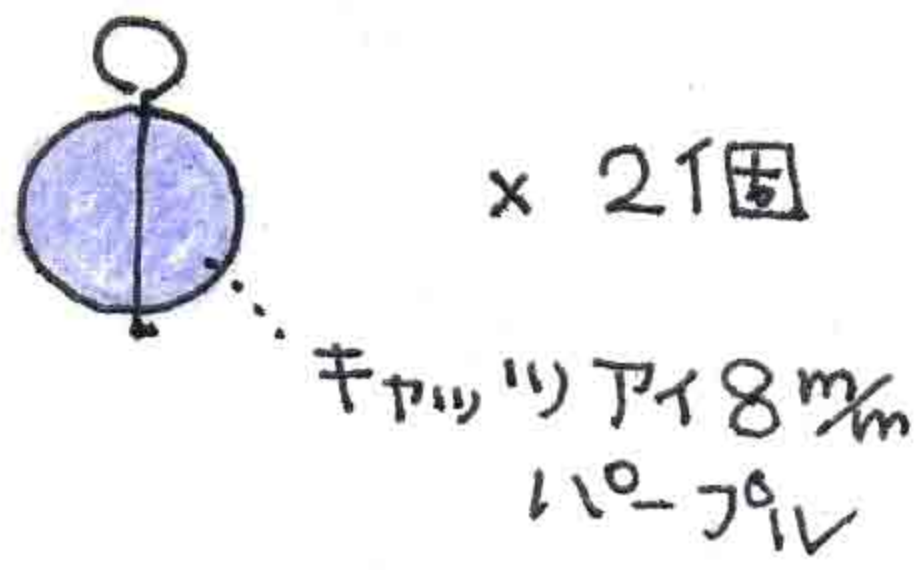 × 2個
キャッツアイ 8m/m
パープル